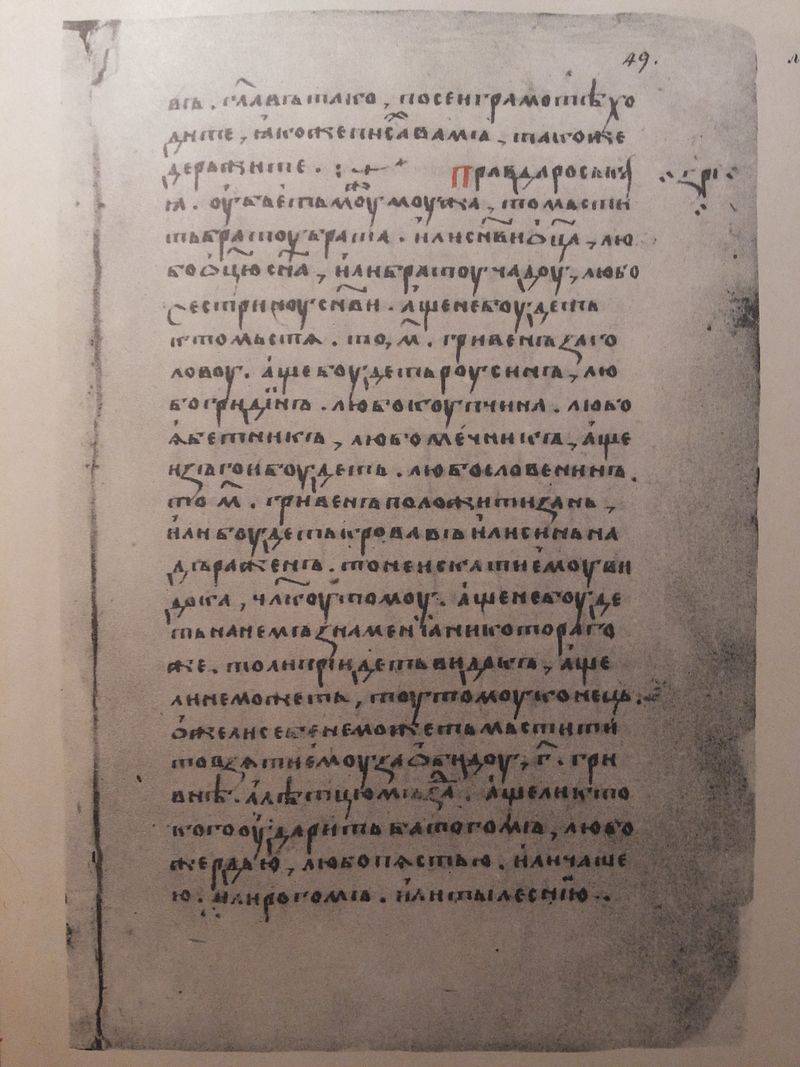 49.
въ. гл҃авъ тако, посеи грамотѣ хо
дите, ꙗкоже писа̑ вамъ, такоже
держите. правда росьскаꙗ
ꙗ. оубьеть моу моужа, то мьсти
ть братоу брата. или сн҃ви ѡц҃а, лю
бо ѡц҃ю сн҃а, или братоу чадоу, любо
сестриноу сн҃ви. аще не боудеть
кто мьстѧ. то, м҃. гривенъ за го
ловоу. аще боудеть роусинъ, лю
бо гридинъ. любо коупчина. любо
ꙗбетникъ, любо мечникъ, аще
изъгои боудеть. любо словенинъ.
то м҃. гривенъ положити за нь,
или боудеть кровавъ или синь на
дъраженъ. то не искати емоу ви
дока, чл҃коу томоу. аще не боуде
ть на немъ знамениꙗ никотораго
же. то ли приидеть видокъ, аще
ли не можеть, тоу томоу конець.
оже ли себе не можеть мьстити
то взѧти емоу за обидоу, г҃. грн
внѣ. а лѣтцю мъзда. аще ли кто
кого оударить батогомъ, любо
жердью, любо пѧстью. или чаше
ю. или рогомъ. или тылеснию.